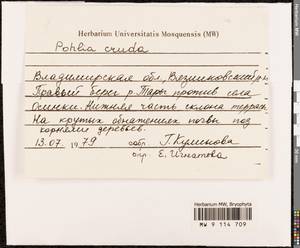 Herbarium Universitatis Mosquensis (MW)
Pohlia cruda
Владимирская обл., Вязниковский р-н
Правый берег р. Тары против села
Осинки. Нижняя часть склона террасы
На крутых обнажениях почвы под
корнями деревьев.
13.07. 1979 собр. Т.
опр. Е. Игнатова
Herbarium MW, Bryophyta
MW 9 114 709